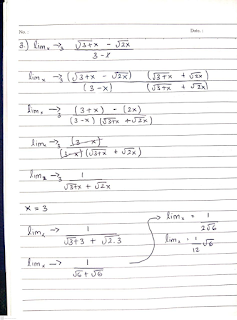 No.: Date:
3.) lim x→3 √3+x - √2x / 3-x
lim x→3 (√3+x - √2x) / (3-x) (√3+x + √2x) / (√3+x + √2x)
lim x→3 (3+x) - (2x) / (3-x)(√3+x + √2x)
lim x→3 (3-x) / (3-x)(√3+x + √2x)
lim x→3 1 / √3+x + √2x
x = 3
lim x→ 1 / √3+3 + √2.3
lim x→ 1 / √6 + √6
lim x = 1 / 2√6
lim x = 1/12 √6